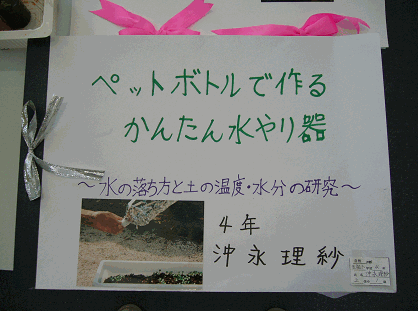 ペットボトルで作る
かんたん水やり器
～水の落ち方と土の温度・水分の研究～
4年
沖永理紗